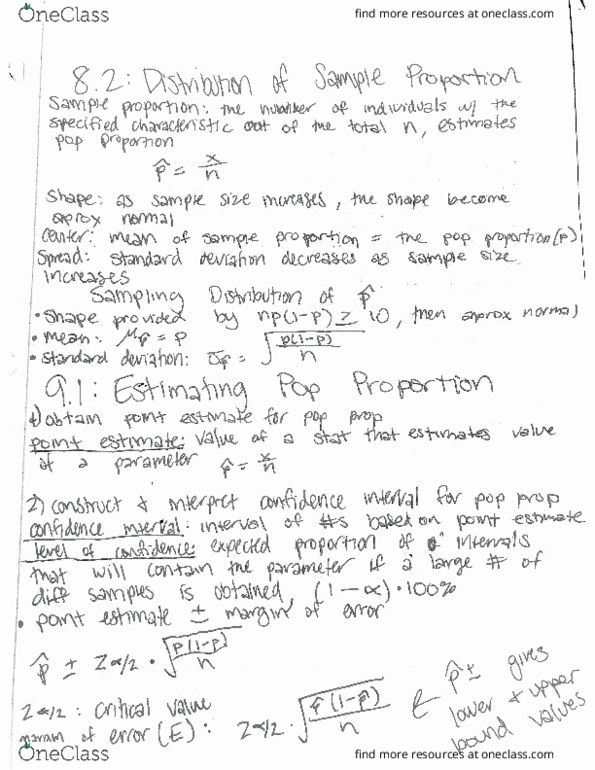 OneClass
find more resources at oneclass.com
8.2: Distribution of Sample Proportion
Sample proportion: the number of individuals w/ the
specified characteristic out of the total n, estimates
pop proportion
p̂ = x/n
Shape: as sample size increases, the shape become
aprox normal
Center: mean of sample proportion = the pop proportion (p)
Spread: standard deviation decreases as sample size
increases
Sampling Distribution of p̂
• Shape provided by np(1-p) ≥ 10, then aprox normal
• mean: μp̂ = p
• standard deviation: σp̂ = √p(1-p)/n
9.1: Estimating Pop Proportion
1) obtain point estimate for pop prop
point estimate: value of a stat that estimates value
of a parameter p̂ = x/n
2) construct & interpret confidence interval for pop prop
confidence interval: interval of #s based on point estimate
level of confidence: expected proportion of intervals
that will contain the parameter if a large # of
diff samples is obtained, (1-α)·100%
• point estimate ± margin of error
p̂ ± Zα/2 · √p(1-p)/n
Zα/2 : critical value
of error (E): Zα/2 · √p̂(1-p̂)/n
p̂ ± gives
lower & upper
bound values
OneClass
find more resources at oneclass.com